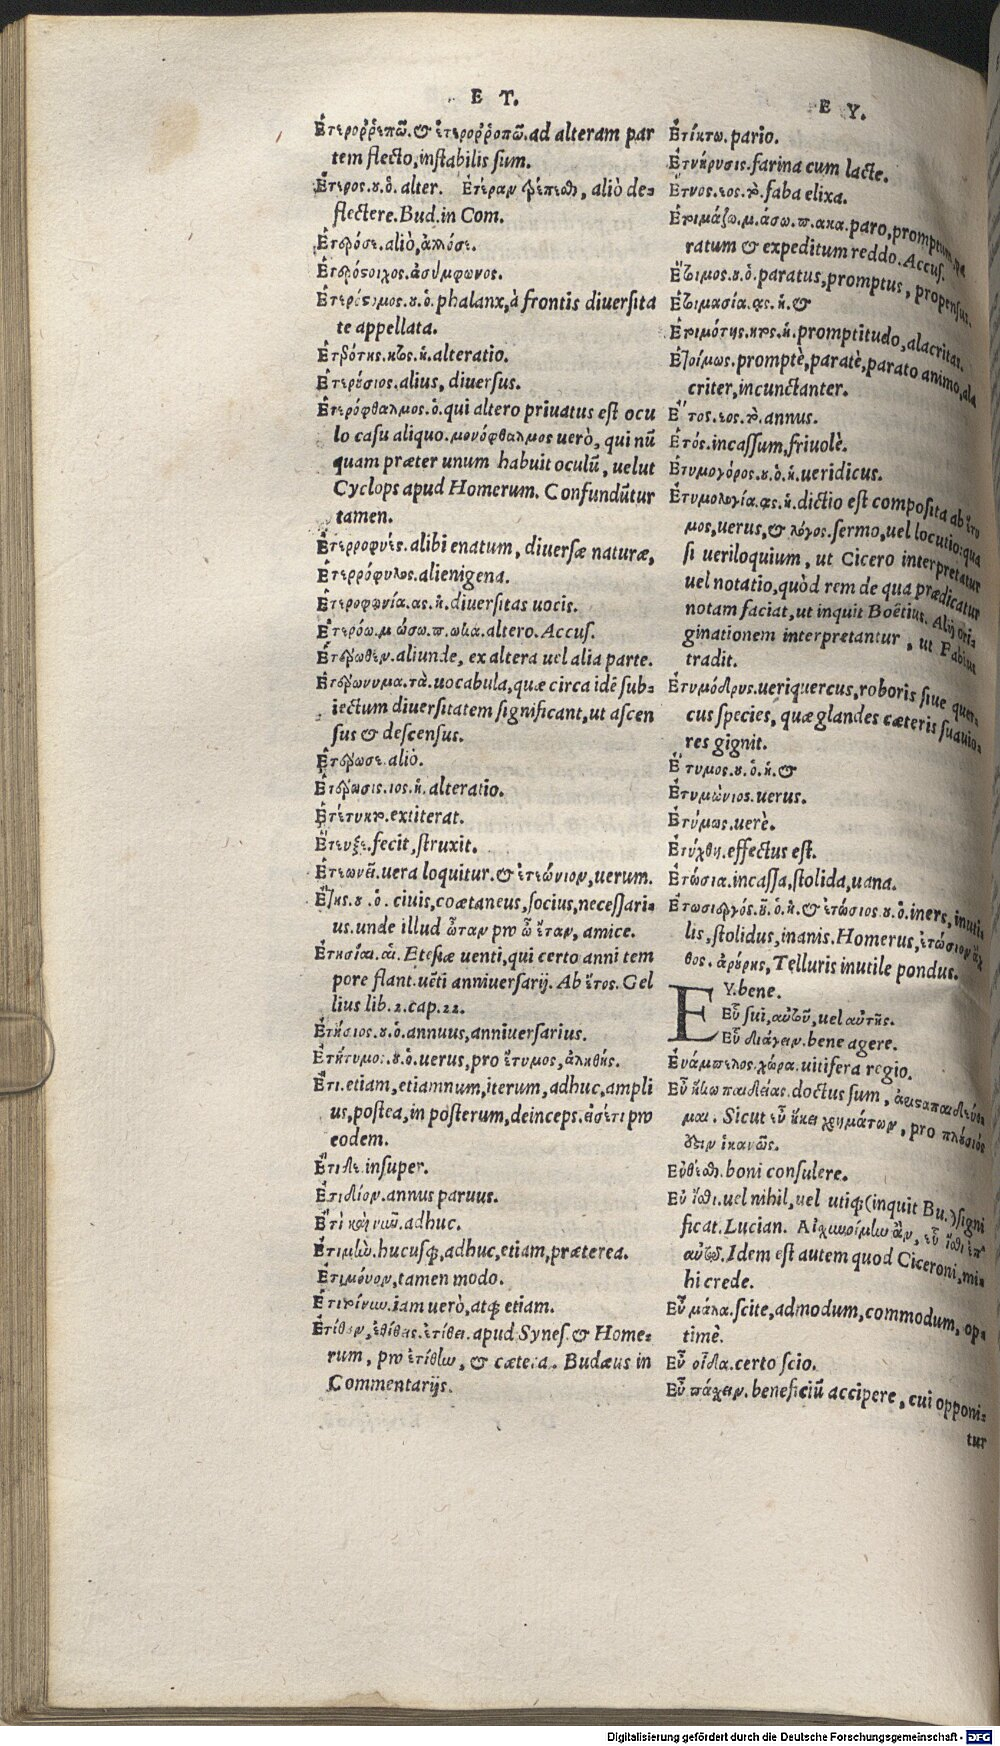 E T.
Ἑτερορρεπῶ. & ἑτερορροπῶ. ad alteram par
tem flecto, instabilis sum.
Ἕτερος. ου. ὁ. alter. Ἑτέραν τρέπεσθαι, aliò de-
flectere. Bud. in Com.
Ἑτερόσε. aliò, ἀλλόσε.
Ἑτερόστοιχος. ἀσύμφωνος.
Ἑτερόστομος. ου. ὁ. phalanx, à frontis diuersita
te appellata.
Ἑτερότης. ητος. ἡ. alteratio.
Ἑτερούσιος. alius, diuersus.
Ἑτερόφθαλμος. ὁ. qui altero priuatus est ocu
lo casu aliquo. μονόφθαλμος uerò, qui nũ
quam præter unum habuit oculũ, uelut
Cyclops apud Homerum. Confundũtur
tamen.
Ἑτερροφυὲς. alibi enatum, diuersæ naturæ,
Ἑτερρόφυλος. alienigena.
Ἑτεροφωνία. ας. ἡ. diuersitas uocis.
Ἑτερόω. μ. ώσω. π. ωκα. altero. Accus.
Ἑτέρωθεν. aliunde, ex altera uel alia parte.
Ἑτερώνυμα. τὰ. uocabula, quæ circa idẽ sub-
iectum diuersitatem significant, ut ascen
sus & descensus.
Ἑτέρωσε. aliò.
Ἑτέρωσις. ιος. ἡ. alteratio.
Ἐτέτυκτο. extiterat.
Ἔτευξε. fecit, struxit.
Ἐτεωνεῖ. uera loquitur. & ἐτεώνιον, uerum.
Ἔτης. ου. ὁ. ciuis, coætaneus, socius, necessari-
us. unde illud ὦταν pro ὦ ἔταν, amice.
Ἐτησίαι. αἱ. Etesiæ uenti, qui certo anni tem
pore flant. uẽti anniuersarij. Ab ἔτος. Gel
lius lib. 2. cap. 22.
Ἐτήσιος. ου. ὁ. annuus, anniuersarius.
Ἐτήτυμος. ου. ὁ. uerus, pro ἔτυμος, ἀληθής.
Ἔτι. etiam, etiamnum, iterum, adhuc, ampli
us, postea, in posterum, deinceps. εἰσέτι pro
eodem.
Ἔτι δε. insuper.
Ἐτιδίον. annus paruus.
Ἔτι καὶ νῦν. adhuc.
Ἔτι μὴν. hucusq́;, adhuc, etiam, præterea.
Ἔτι μόνον, tamen modo.
Ἔτι τοίνυν. iam uerò, atq́; etiam.
Ἐτίθουν, ἐτίθεις. ἐτίθει. apud Synes. & Home-
rum, pro ἐτίθην, & cætera. Budæus in
Commentarijs.
E Y.
Ἐτίκτω. pario.
Ἐτνήρυσις. farina cum lacte.
Ἔτνος. εος. τὸ. faba elixa.
Ἑτοιμάζω. μ. άσω. π. ακα. paro, promptum, pa
ratum & expeditum reddo. Accus.
Ἕτοιμος. ου. ὁ. paratus, promptus, propensus.
Ἑτοιμασία. ας. ἡ. &
Ἑτοιμότης. ητος. ἡ. promptitudo, alacritas.
Ἑτοίμως. promptè, paratè, parato animo, ala
criter, incunctanter.
Ἔτος. εος. τὸ. annus.
Ἐτός. incassum, friuolè.
Ἐτυμογόρος. ου. ὁ. ἡ. ueridicus.
Ἐτυμολογία. ας. ἡ. dictio est composita ab ἔτυ
μος, uerus, & λόγος. sermo, uel locutio: qua
si ueriloquium, ut Cicero interpretatur
uel notatio, quòd rem de qua prædicatur
notam faciat, ut inquit Boëtius. Alij ori-
ginationem interpretantur, ut Fabius
tradit.
Ἐτυμόδρυς. ueriquercus, roboris siue quer-
cus species, quæ glandes cæteris suauio-
res gignit.
Ἔτυμος. ου. ὁ. ἡ. &
Ἐτυμώνιος. uerus.
Ἐτύμως. uerè.
Ἐτύχθη. effectus est.
Ἐτώσια. incassa, stolida, uana.
Ἐτωσιεργός. οῦ. ὁ. ἡ. & ἐτώσιος. ου. ὁ. iners, inuti
lis, stolidus, inanis. Homerus, ἐτώσιον ἄχ
θος. ἀρούρης, Telluris inutile pondus.
EY. bene.
Εὗ sui, αὐτοῦ, uel αὐτῆς.
Εὖ διάγειν. bene agere.
Εὐάμπελος. χώρα. uitifera regio.
Εὖ ἥκω παιδείας. doctus sum,
μαι. Sicut εὖ ἥκει χρημάτων, pro πλούσιός
ἱκανῶς.
Εὐθέσθαι. boni consulere.
Εὖ ἴσθι. uel nihil, uel utiq́; (inquit Bu.) signi
ficat. Lucian. Αἰσχυνοίμην ἂν, εὖ ἴσθι ἐπ'
αὐτῷ. Idem est autem quod Ciceroni, mi-
hi crede.
Εὖ μάλα. scite, admodum, commodum, op-
timè.
Εὖ οἶδα. certo scio.
Εὖ πάχειν. beneficiũ accipere, cui opponi-
tur
Digitalisierung gefördert durch die Deutsche Forschungsgemeinschaft - DFG